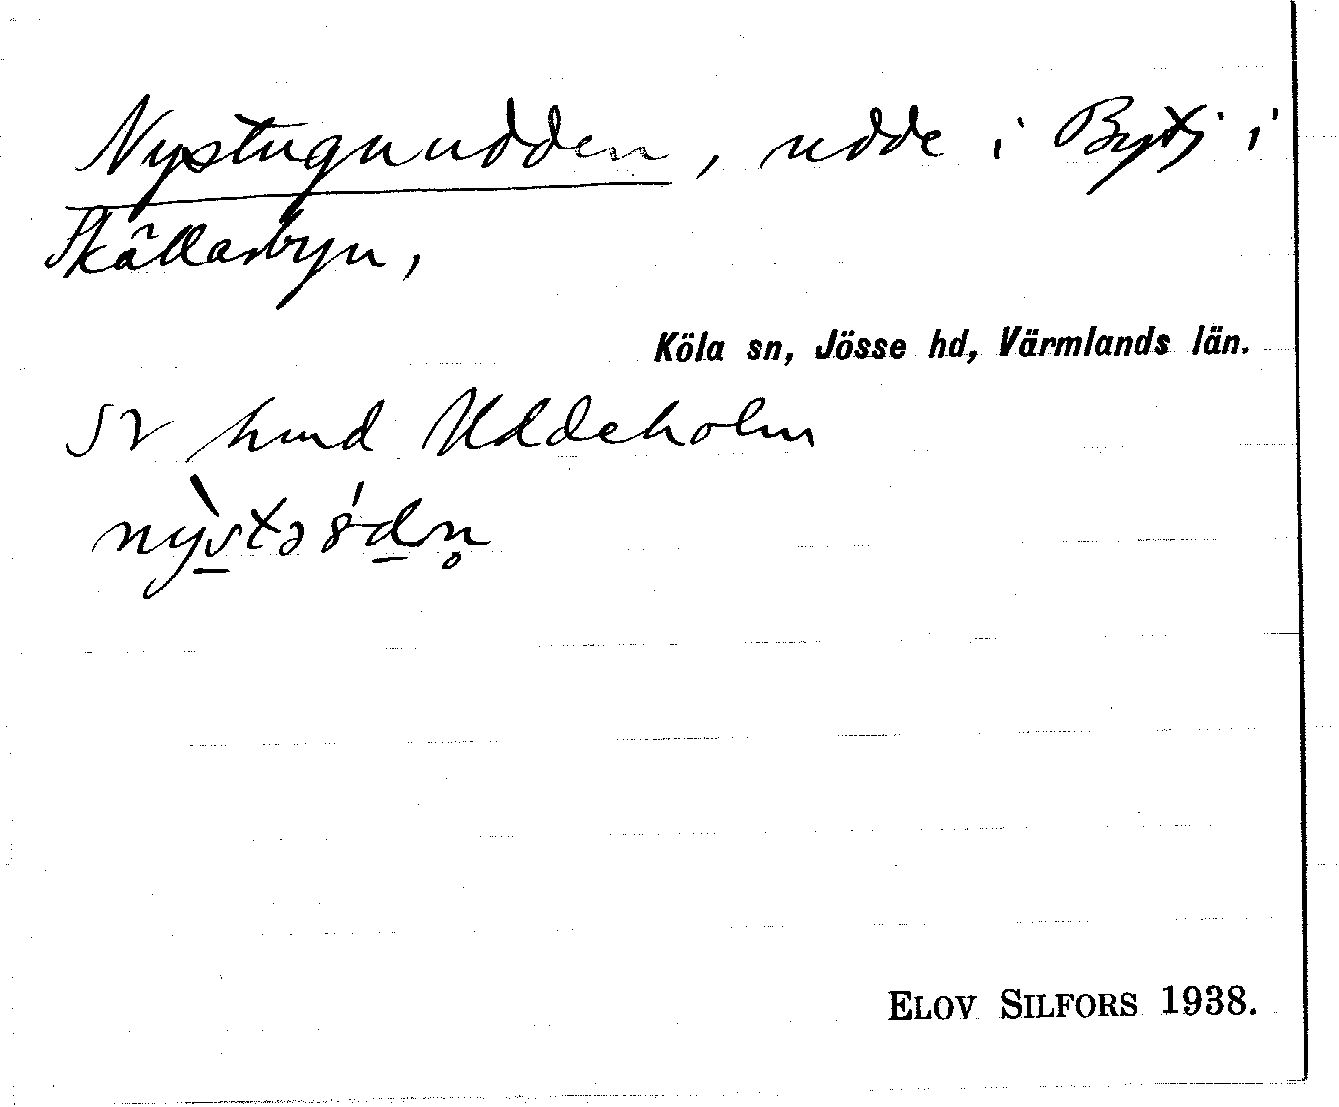 Nystugnudden, udde i Bytj i
Skällarbyn,
Köla sn, Jösse hd, Värmlands län.
SV hmd Uddeholm
ELOV SILFORS 1938.